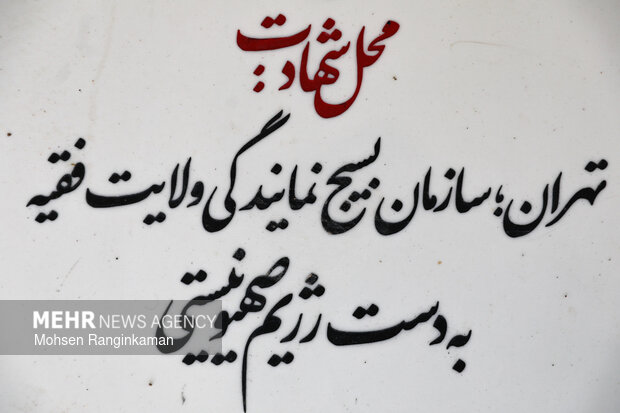 محل شهادت:
تهران؛ سازمان بسیج نمایندگی ولایت فقیه
به دست رژیم صهیونیستی
MEHR NEWS AGENCY
Mohsen Ranginkaman